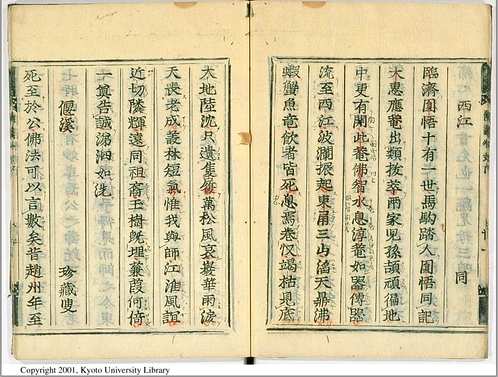 西江 同
臨濟圓悟十有一世馬駒踏人圓悟同記
大惠應菴出類拔萃兩家兒孫頡頏徧地
中更有關此菴佛智水息淳菴如器傳器
流至西江波瀾振起東甬三山滔天鼎沸
蝦蟹魚竜飲者皆死息焉卷収竭枯見底
大地陸沈只遺隻履萬松風哀華雨淚
天喪老成叢林短氣惟我與師江淮風誼
近切隣輝遠同祖裔玉樹旣埋蒹葭何倚
一奠告誠涕泗如洗
偃溪 珍藏叟
死至於公佛法可以言數矣昔趙州年至
Copyright 2001, Kyoto University Library